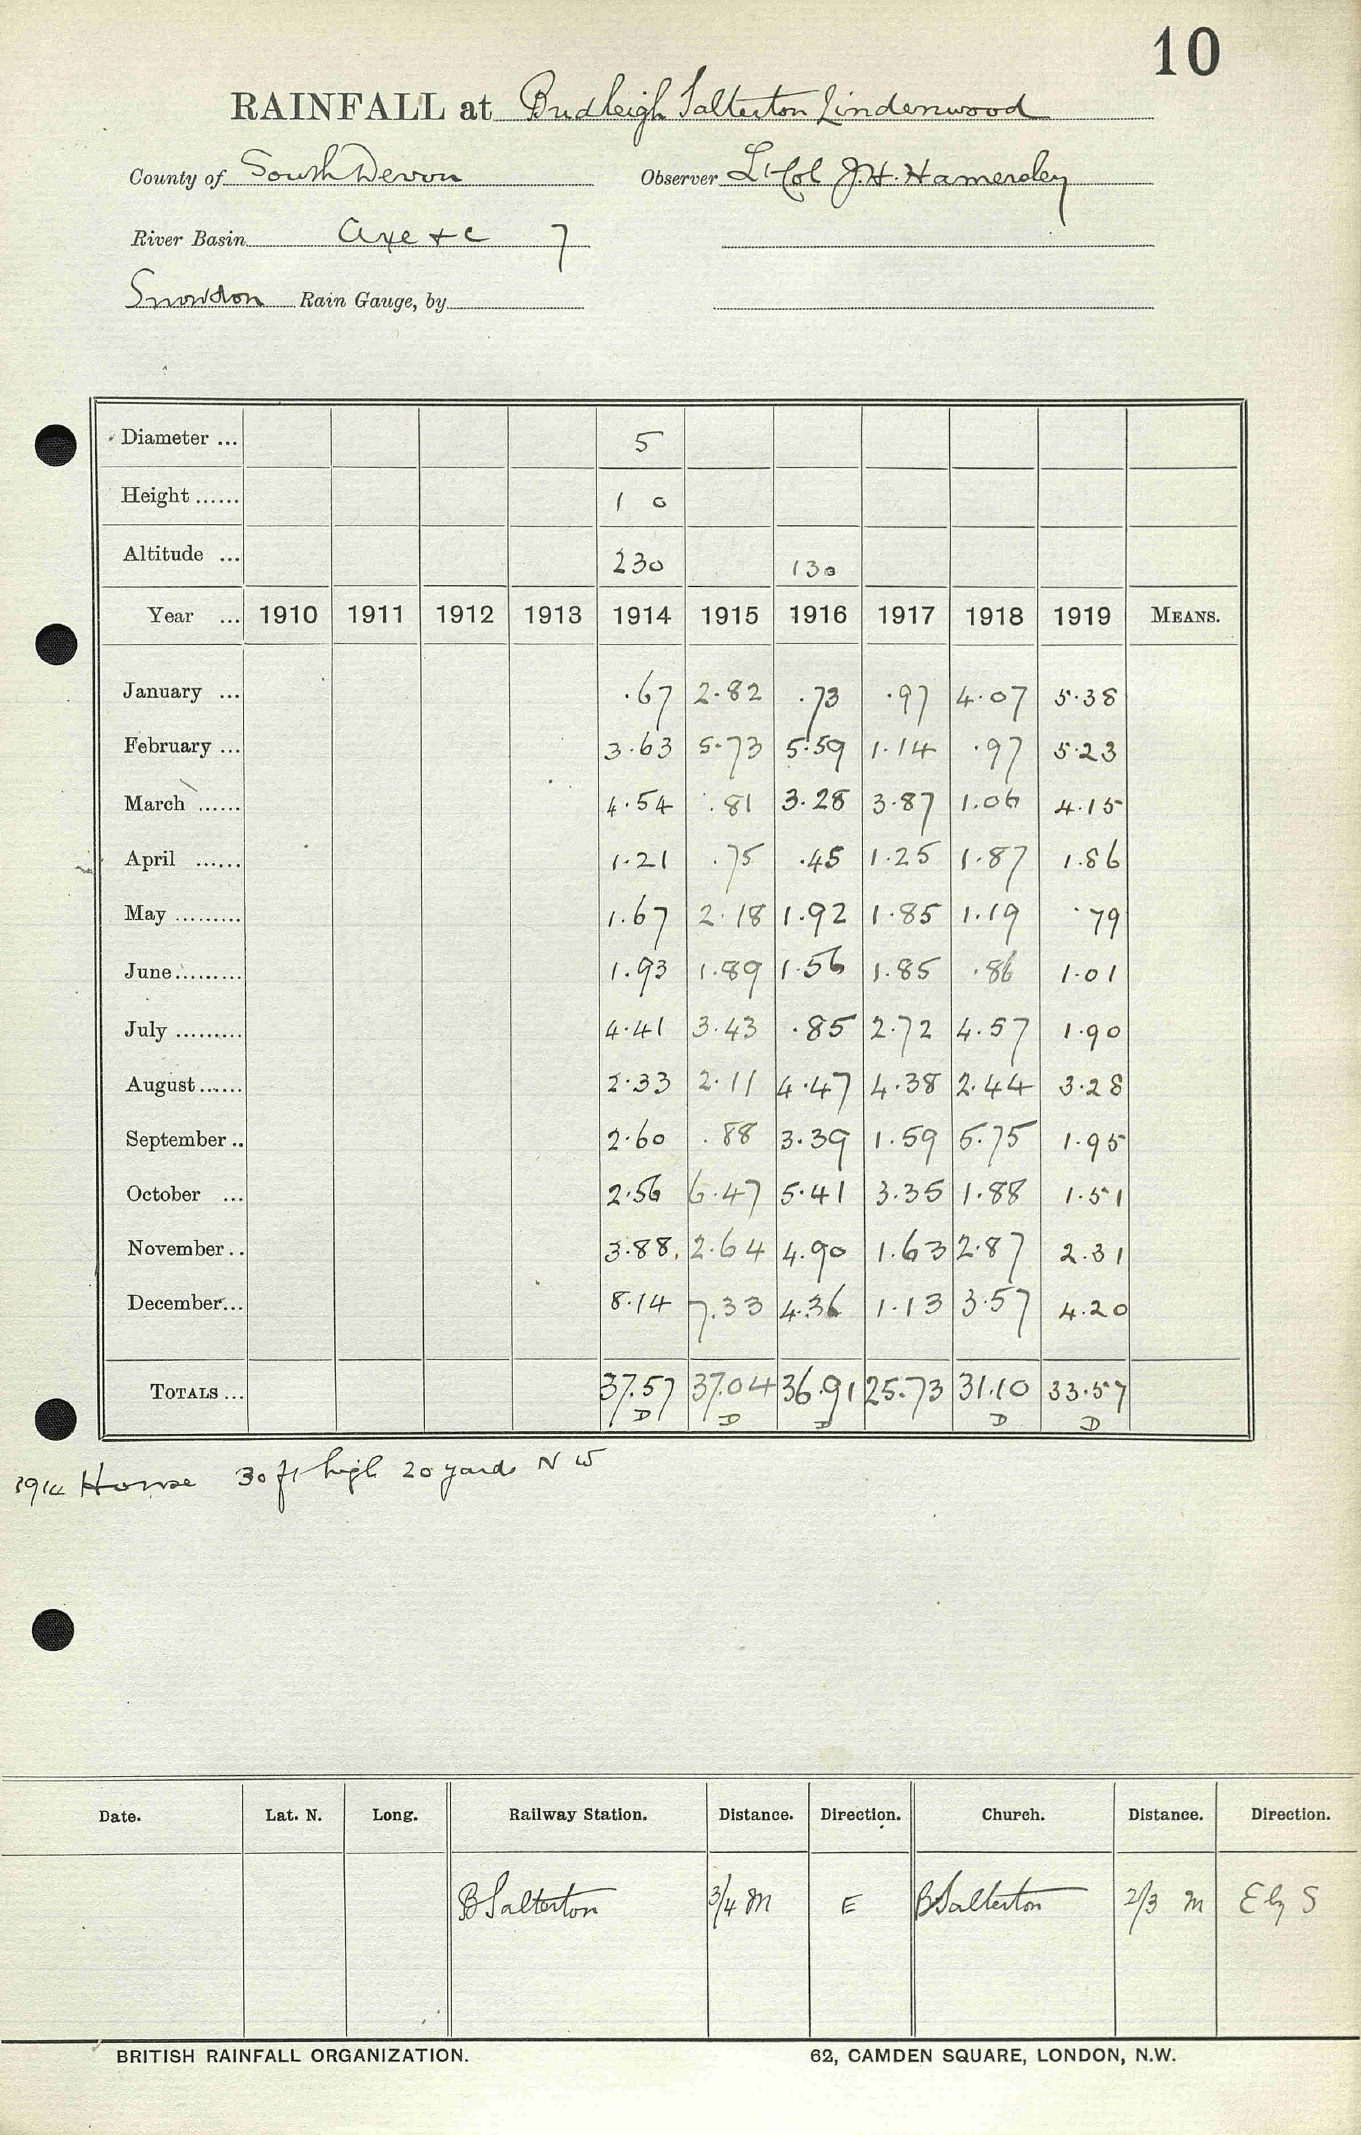 10
RAINFALL at Budleigh Salterton Lindenwood
County of South Devon Observer Lt Col J.H. Hamersley
River Basin Axe + c 7
Snowdon Rain Gauge, by
Diameter ... 5
Height ...... 1 0
Altitude ... 230 130
Year ... 1910 1911 1912 1913 1914 1915 1916 1917 1918 1919 MEANS.
January ... .67 2.82 .73 .97 4.07 5.38
February ... 3.63 5.73 5.59 1.14 .97 5.23
March ...... 4.54 .81 3.28 3.87 1.06 4.15
April ...... 1.21 .75 .45 1.25 1.87 1.86
May ......... 1.67 2.18 1.92 1.85 1.19 .79
June ......... 1.93 1.89 1.56 1.85 .86 1.01
July ......... 4.41 3.43 .85 2.72 4.57 1.90
August ...... 2.33 2.11 4.47 4.38 2.44 3.28
September .. 2.60 .88 3.39 1.59 5.75 1.95
October ... 2.56 6.47 5.41 3.35 1.88 1.51
November .. 3.88 2.64 4.90 1.63 2.87 2.31
December ... 8.14 7.33 4.36 1.13 3.57 4.20
TOTALS ... 37.57 37.04 36.91 25.73 31.10 33.57
D D D D D
1914 House 30 ft high 20 yards N W
Date. Lat. N. Long. Railway Station. Distance. Direction. Church. Distance. Direction.
B Salterton 3/4 M E B Salterton 2/3 M E by S
BRITISH RAINFALL ORGANIZATION. 62, CAMDEN SQUARE, LONDON, N.W.